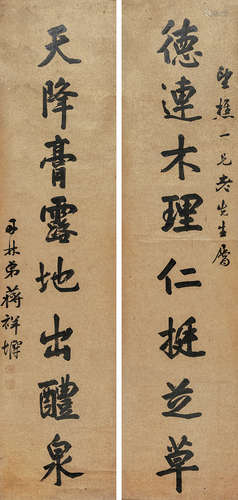 望樵一兄老先生屬
德連木理仁挺芝草
天降膏露地出醴泉
丹林弟蔣祥墀